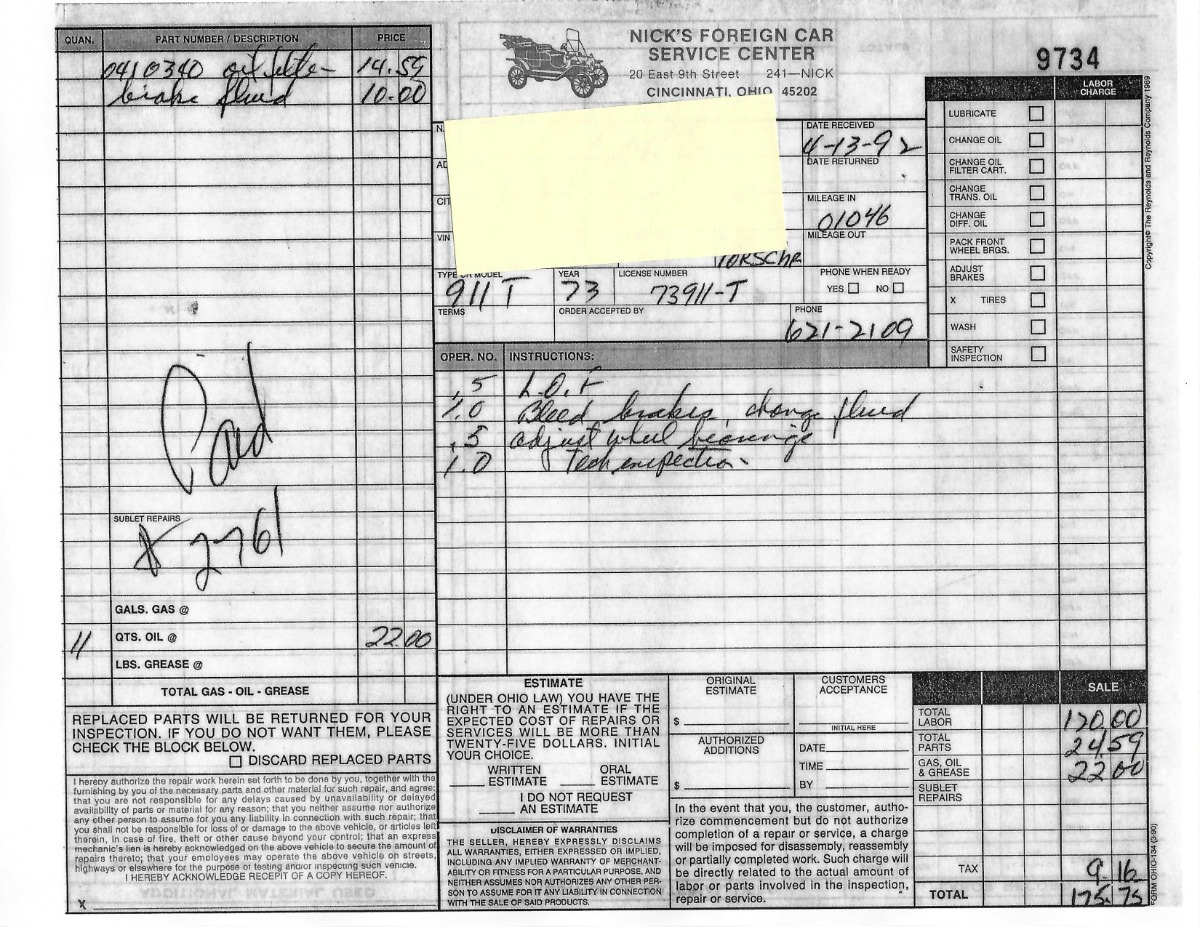 QUAN. PART NUMBER / DESCRIPTION PRICE
0410340 oil filter 14.59
brake fluid 10.00
Paid
SUBLET REPAIRS
# 2761
GALS. GAS @
11 QTS. OIL @ 22.00
LBS. GREASE @
TOTAL GAS - OIL - GREASE
REPLACED PARTS WILL BE RETURNED FOR YOUR
INSPECTION. IF YOU DO NOT WANT THEM, PLEASE
CHECK THE BLOCK BELOW.
☐ DISCARD REPLACED PARTS
I hereby authorize the repair work herein set forth to be done by you, together with the
furnishing by you of the necessary parts and other material for such repair, and agree:
that you are not responsible for any delays caused by unavailability or delayed
availability of parts or material for any reason; that you neither assume nor authorize
any other person to assume for you any liability in connection with such repair; that
you shall not be responsible for loss of or damage to the above vehicle, or articles left
therein, in case of fire, theft or other cause beyond your control; that an express
mechanic's lien is hereby acknowledged on the above vehicle to secure the amount of
repairs thereto; that your employees may operate the above vehicle on streets,
highways or elsewhere for the purpose of testing and/or inspecting such vehicle.
I HEREBY ACKNOWLEDGE RECEIPT OF A COPY HEREOF.
X
NICK'S FOREIGN CAR
SERVICE CENTER
20 East 9th Street 241—NICK
CINCINNATI, OHIO 45202
9734
N
AD
CIT
VIN
DATE RECEIVED
4-13-92
DATE RETURNED
MILEAGE IN
01046
MILEAGE OUT
PORSCHE
TYPE OR MODEL YEAR LICENSE NUMBER PHONE WHEN READY
911 T 73 73911-T YES ☐ NO ☐
TERMS ORDER ACCEPTED BY PHONE
621-2109
LABOR
CHARGE
LUBRICATE ☐
CHANGE OIL ☐
CHANGE OIL
FILTER CART. ☐
CHANGE
TRANS. OIL ☐
CHANGE
DIFF. OIL ☐
PACK FRONT
WHEEL BRGS. ☐
ADJUST
BRAKES ☐
X TIRES ☐
WASH ☐
SAFETY
INSPECTION ☐
Copyright© The Reynolds and Reynolds Company 1989
OPER. NO. INSTRUCTIONS:
.5 L.O.F
1.0 Bleed brakes change fluid
.5 adjust wheel bearings
1.0 Tech inspection
ESTIMATE
(UNDER OHIO LAW) YOU HAVE THE
RIGHT TO AN ESTIMATE IF THE
EXPECTED COST OF REPAIRS OR
SERVICES WILL BE MORE THAN
TWENTY-FIVE DOLLARS. INITIAL
YOUR CHOICE.
WRITTEN ESTIMATE ORAL ESTIMATE
I DO NOT REQUEST
AN ESTIMATE
DISCLAIMER OF WARRANTIES
THE SELLER, HEREBY EXPRESSLY DISCLAIMS
ALL WARRANTIES, EITHER EXPRESSED OR IMPLIED,
INCLUDING ANY IMPLIED WARRANTY OF MERCHANT-
ABILITY OR FITNESS FOR A PARTICULAR PURPOSE, AND
NEITHER ASSUMES NOR AUTHORIZES ANY OTHER PER-
SON TO ASSUME FOR IT ANY LIABILITY IN CONNECTION
WITH THE SALE OF SAID PRODUCTS.
ORIGINAL
ESTIMATE
$
AUTHORIZED
ADDITIONS
$
CUSTOMERS
ACCEPTANCE
INITIAL HERE
DATE
TIME
BY
In the event that you, the customer, autho-
rize commencement but do not authorize
completion of a repair or service, a charge
will be imposed for disassembly, reassembly
or partially completed work. Such charge will
be directly related to the actual amount of
labor or parts involved in the inspection,
repair or service.
SALE
TOTAL
LABOR 120.00
TOTAL
PARTS 24.59
GAS, OIL
& GREASE 22.00
SUBLET
REPAIRS
TAX 9.16
TOTAL 175.75
FORM OHIO-134 (3-90)